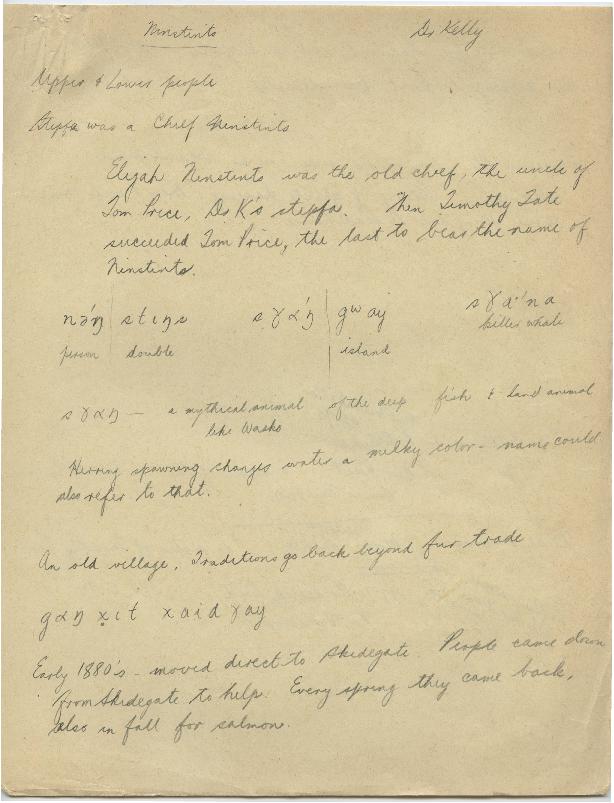 Ninstints Dr Kelly
Upper & Lower people
Stepfa was a Chief Ninstints
Elijah Ninstints was the old chief, the uncle of
Tom Price, Dr K's stepfa. Then Timothy Tate
succeeded Tom Price, the last to bear the name of
Ninstints.
nəńŋ | stɩŋs sɣάŋ | gʷay sɣa·́na
killer whale
person double island
sɣαŋ — a mythical animal of the deep fish & land animal
like Wasko
Herring spawning changes water a milky color - name could
also refer to that.
An old village. Traditions go back beyond fur trade
gαŋ x̣ɩt xaidɣay
Early 1880's - moved direct to Skidegate. People came down
from Skidegate to help. Every spring they came back,
also in fall for salmon.